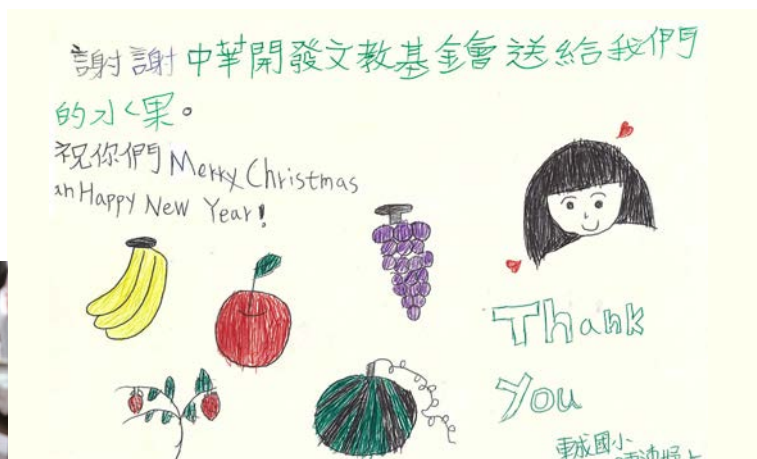 謝謝中華開發文教基金會送給我們
的水果。
祝你們 Merry Christmas
an Happy New Year!
Thank
You
國小